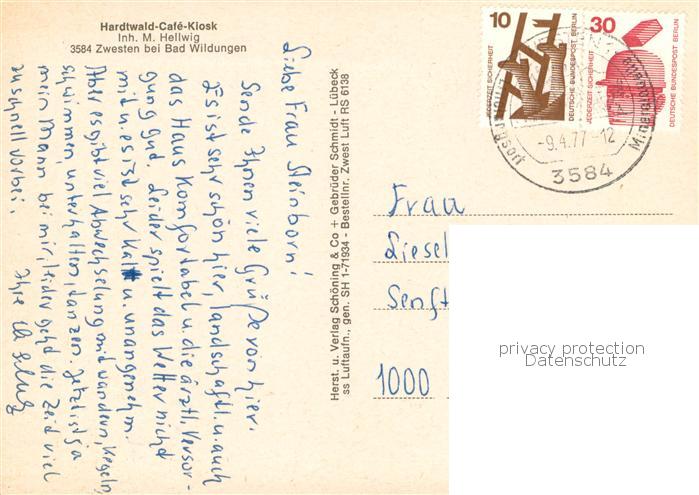 Hardtwald-Café-Kiosk
Inh. M. Hellwig
3584 Zwesten bei Bad Wildungen
Liebe Frau Steinborn!
Sende Ihnen viele Grüße von hier.
Es ist sehr schön hier, landschaftl. u. auch
das Haus komfortabel u. die ärztl. Versor-
gung gut. Leider spielt das Wetter nicht
mit u. es ist sehr kalt u. unangenehm.
Aber es gibt viel Abwechselung mit wandern, Kegeln,
schwimmen unterhalten, tanzen. Jetzt ist ja
mein Mann bei mir, leider geht die Zeit viel
zu schnell vorbei.
Ihre
Herst. u. Verlag Schöning & Co + Gebrüder Schmidt - Lübeck
ss Luftaufn., gen. SH 1-71934 - Bestellnr. Zwest Luft RS 6138
10
JEDERZEIT SICHERHEIT
DEUTSCHE BUNDESPOST BERLIN
30
JEDERZEIT SICHERHEIT
DEUTSCHE BUNDESPOST BERLIN
-9.4.77-12
3584
Frau
Liesel
Senft
1000
privacy protection
Datenschutz